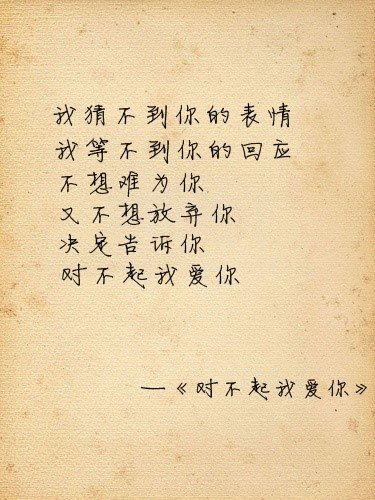 我猜不到你的表情
我等不到你的回应
不想难为你
又不想放弃你
决定告诉你
对不起我爱你
—《对不起我爱你》